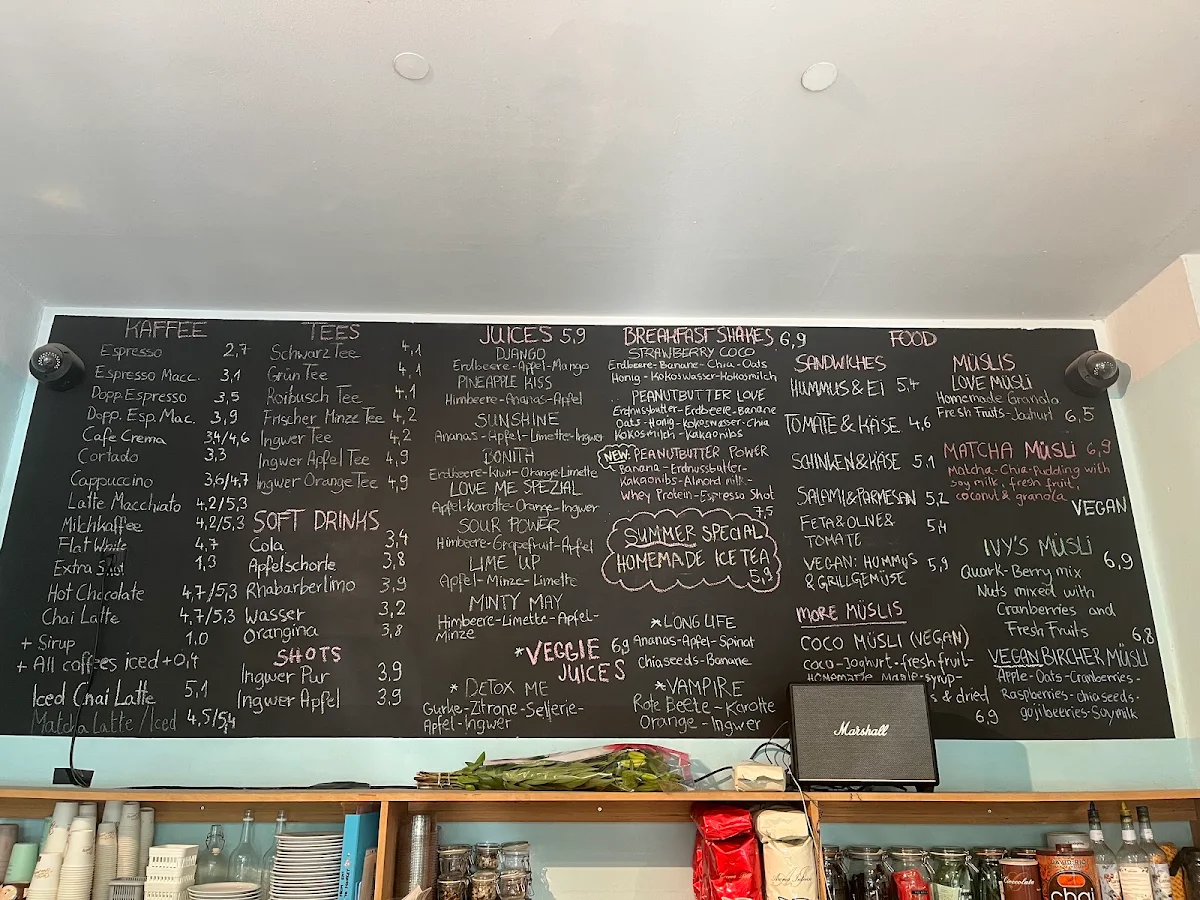 KAFFEE
Espresso 2,7
Espresso Macc. 3,1
Dopp. Espresso 3,5
Dopp. Esp. Mac. 3,9
Cafe Crema 3,4/4,6
Cortado 3,3
Cappuccino 3,6/4,7
Latte Macchiato 4,2/5,3
Milchkaffee 4,2/5,3
Flat White 4,7
Extra Shot 1,3
Hot Chocolate 4,7/5,3
Chai Latte 4,7/5,3
+ Sirup 1.0
+ All coffees iced +0,4
Iced Chai Latte 5,1
Matcha Latte / Iced 4,5/5,4
TEES
Schwarz Tee 4,1
Grün Tee 4,1
Roibusch Tee 4,1
Frischer Minze Tee 4,2
Ingwer Tee 4,2
Ingwer Apfel Tee 4,9
Ingwer Orange Tee 4,9
SOFT DRINKS
Cola 3,4
Apfelschorle 3,8
Rhabarberlimo 3,9
Wasser 3,2
Orangina 3,8
SHOTS
Ingwer Pur 3.9
Ingwer Apfel 3.9
JUICES 5,9
DJANGO
Erdbeere-Apfel-Mango
PINEAPPLE KISS
Himbeere-Ananas-Apfel
SUNSHINE
Ananas-Apfel-Limette-Ingwer
Erdbeere-Kiwi-Orange-Limette
LOVE ME SPEZIAL
Apfel-Karotte-Orange-Ingwer
SOUR POWER
Himbeere-Grapefruit-Apfel
LIME UP
Apfel-Minze-Limette
MINTY MAY
Himbeere-Limette-Apfel-
Minze
*VEGGIE 6,9
JUICES
*DETOX ME
Gurke-Zitrone-Sellerie-
Apfel-Ingwer
BREAKFAST SHAKES 6,9
STRAWBERRY COCO
Erdbeere-Banane-Chia-Oats
Honig-Kokoswasser-Kokosmilch
PEANUTBUTTER LOVE
Erdnussbutter-Erdbeere-Banane
Oats-Honig-Kokoswasser-Chia
Kokosmilch-Kakaonibs
NEW PEANUTBUTTER POWER
Banana-Erdnussbutter-
Kakaonibs-Almond milk-
Whey Protein-Espresso Shot
7,5
SUMMER SPECIAL
HOMEMADE ICE TEA
5,9
*LONG LIFE
Ananas-Apfel-Spinat
Chiaseeds-Banane
*VAMPIRE
Rote Beete-Karotte
Orange-Ingwer
FOOD
SANDWICHES
HUMMUS & Ei 5,4
TOMATE & KÄSE 4,6
SCHINKEN & KÄSE 5,1
SALAMI & PARMESAN 5,2
FETA & OLIVE &
TOMATE 5,4
VEGAN: HUMMUS 5,9
& GRILLGEMÜSE
MORE MÜSLIS
COCO MÜSLI (VEGAN)
Coco-Joghurt-fresh fruit-
HOMEMADE Maple-syrup-
s & dried
6,9
MÜSLIS
LOVE MÜSLi
Homemade Granola
Fresh Fruits-Joghurt 6,5
MATCHA MÜSLi 6,9
Matcha-Chia-Pudding with
Soy milk, fresh fruit,
coconut & granola
VEGAN
IVY'S MÜSLi 6,9
Quark-Berry mix
Nuts mixed with
Cranberries and
Fresh Fruits
6,8
VEGAN BIRCHER MÜSLI
Apple-Oats-Cranberries-
Raspberries-chiaseeds-
gojibeeries-Soymilk
Marshall
Chocolate
chai